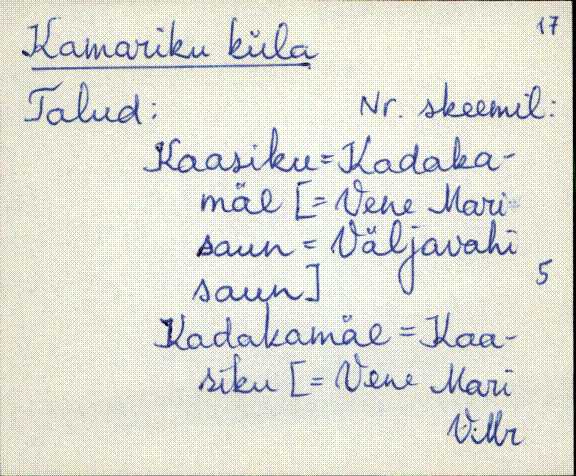 17
Kamariku küla
Talud: Nr. skeemil:
Kaasiku = Kadaka-
mäe [= Vene Mari
saun = Väljavahi
saun] 5
Kadakamäe = Kaa-
siku [= Vene Mari
V.Mr